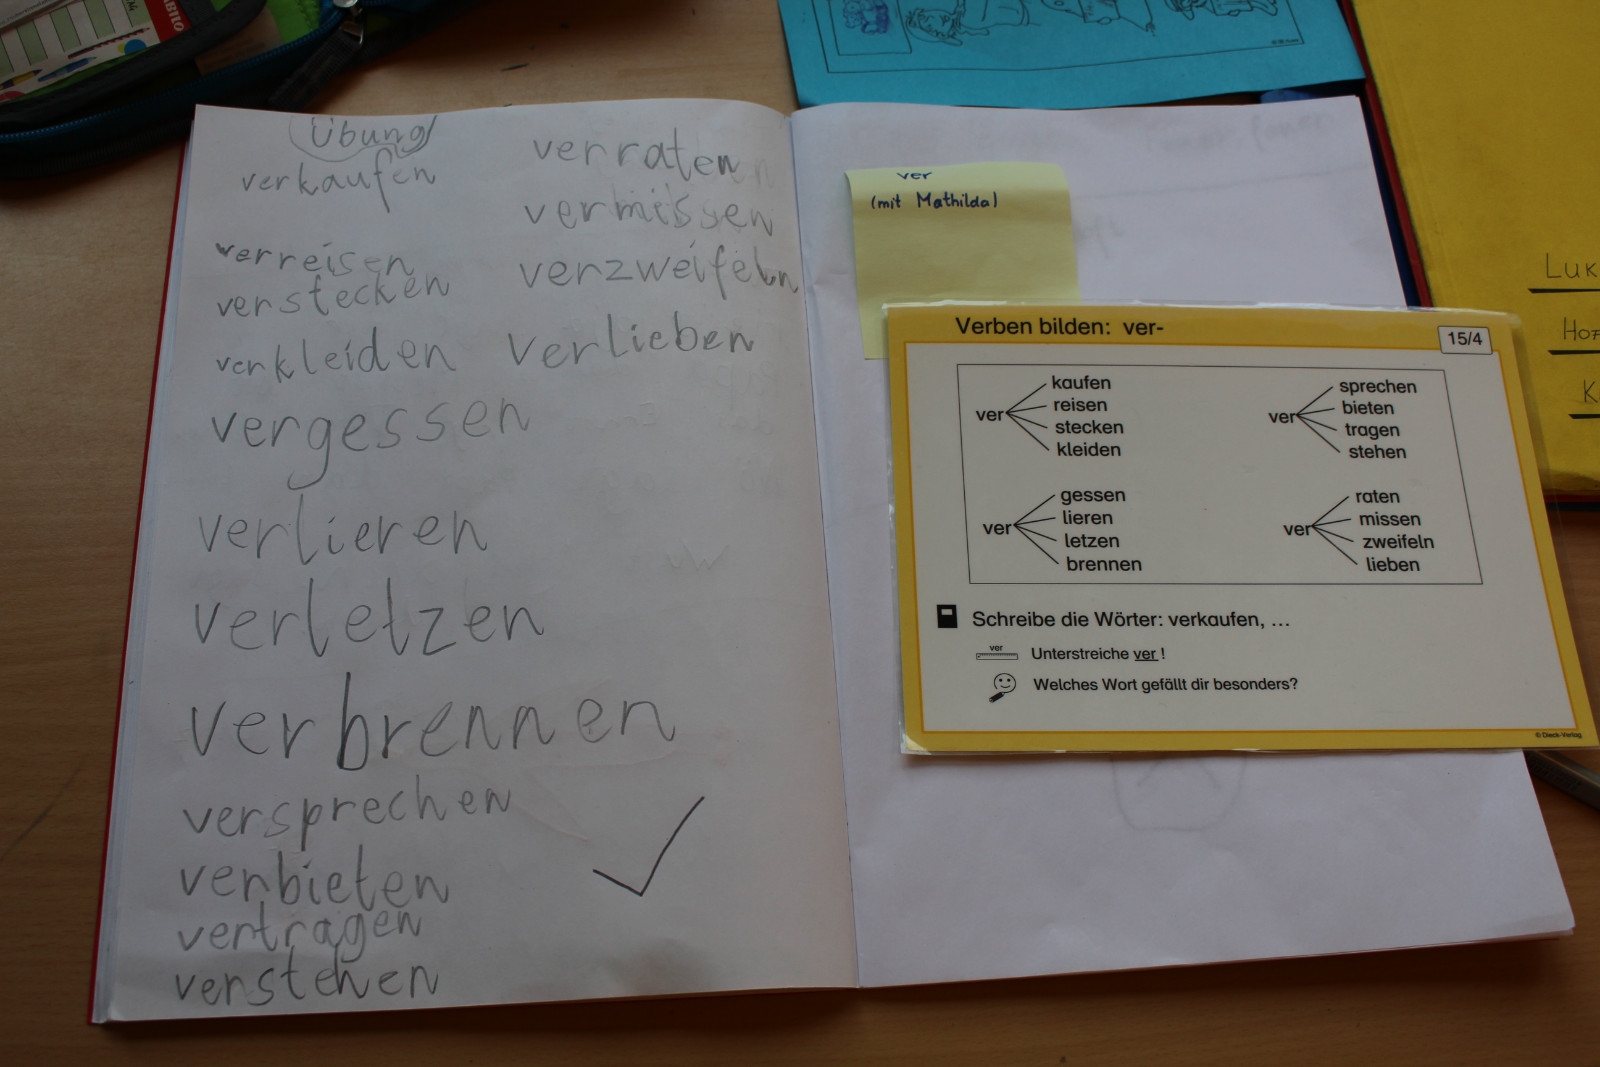 Übung
verkaufen
verreisen
verstecken
verkleiden
vergessen
verlieren
verletzen
verbrennen
versprechen
verbieten
vertragen
verstehen
verraten
vermissen
verzweifeln
verlieben
ver
(mit Mathilda)
Verben bilden: ver-
15/4
ver
kaufen
reisen
stecken
kleiden
ver
sprechen
bieten
tragen
stehen
ver
gessen
lieren
letzen
brennen
ver
raten
missen
zweifeln
lieben
Schreibe die Wörter: verkaufen, ...
ver
Unterstreiche ver !
Welches Wort gefällt dir besonders?
© Dieck-Verlag